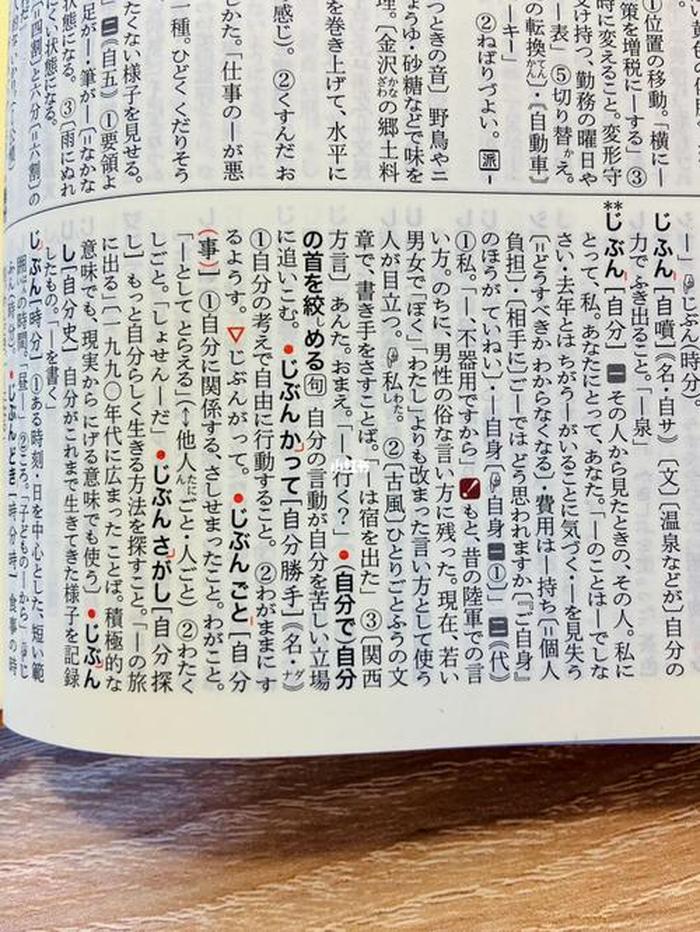 ①位置の移動。「横に―
策を増税に―する」③
時に変えること。変形守
受け持つ、勤務の曜日や
―表」⑤切り替え。
の転換・〔自動車〕
―キー」
②ねばりづよい。派―
つときの音〕野鳥やニ
ょうゆ・砂糖などで味を
理。〔金沢の郷土料
を巻き上げて、水平に
感じ)。②くすんだお
しかた。「仕事の―が悪
一種。ひどくくだりそう
たくない様子を見せる。
」二(自五)①要領よ
足が―・筆が―〔=なかな
状態になる。③〔雨にぬれ
にくい状態になる。
「四割〕と六分〔=六割〕の
―」☞じぶん(時分)。
じふん[自噴]《名・自サ》〔文〕〔温泉などが〕自分の
力でふき出ること。「―泉」
**じぶん[自分]一その人から見たときの、その人。私に
とって、私。あなたにとって、あなた。「―のことは―でしな
さい・去年とはちがう―がいることに気づく・―を見失う
〔=どうすべきかわからなくなる〕・費用は―持ち〔=個人
負担〕・〔相手に〕ご―ではどう思われますか〔『ご自身』
のほうがていねい〕・―自身(☞自身一①)」二《代》
①私。「―、不器用ですから」もと、昔の陸軍での言
い方。のちに、男性の俗な言い方に残った。現在、若い
男女で「ぼく」「わたし」よりも改まった言い方として使う
人が目立つ。☞私。②〔古風〕ひとりごとふうの文
章で、書き手をさすことば。「―は宿を出た」③〔関西
方言〕あんた。おまえ。「―、行く?」●(自分で)自分
の首を絞める句 自分の言動が自分を苦しい立場
に追いこむ。●じぶんかって[自分勝手]《名・ダ》
①自分の考えで自由に行動すること。②わがままにす
るようす。▽じぶんがって。●じぶんごと[自分
(事)]①自分に関係する、さしせまったこと。わがこと。
「―としてとらえる」(↔他人ごと・人ごと)②わたく
しごと。「しょせん―だ」●じぶんさがし[自分探
し]もっと自分らしく生きる方法を探すこと。「―の旅
に出る」〔一九九〇年代に広まったことば。積極的な
意味でも、現実からにげる意味でも使う〕●じぶん
し[自分史]自分がこれまで生きてきた様子を記録
したもの。「―を書く」
じぶん[時分]①ある時刻・日を中心とした、短い範
囲の時間。「昼―」②ころ。「子どもの―から」☞じ
ふん(時分)。●じぶんどき[時分時]食事の時
小红书